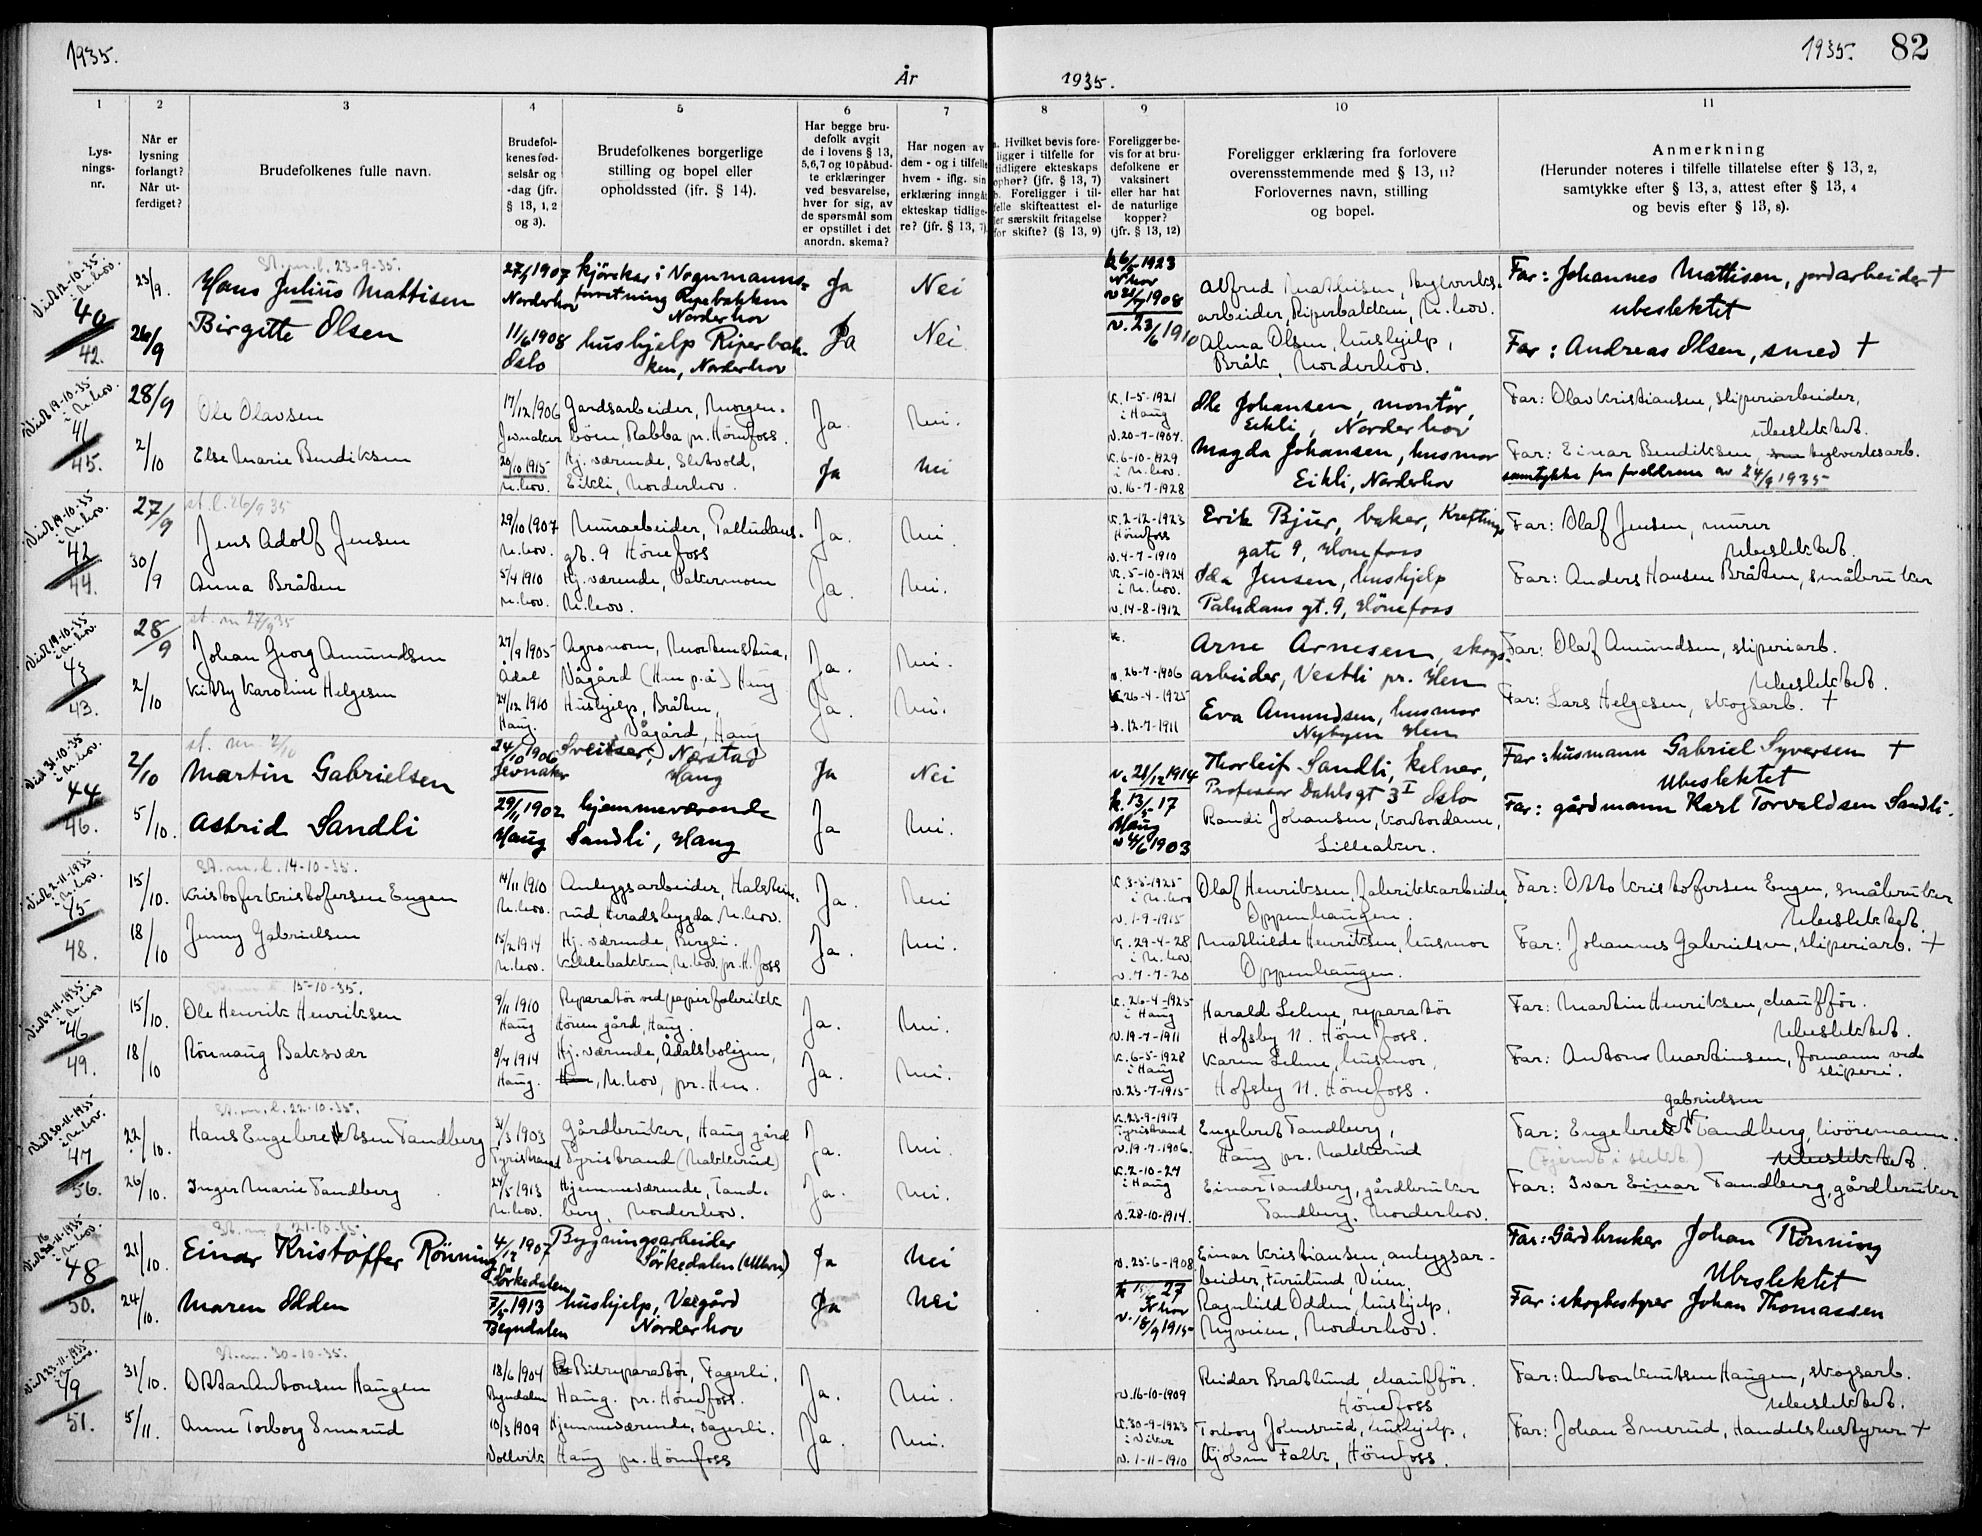 1935.
År
1935.
1935.
82
1
2
3
4
5
6
7
8
9
10
11
Lys-
nings-
nr.
Når er
lysning
forlangt?
Når ut-
ferdiget?
Brudefolkenes fulle navn.
Brudefol-
kenes fød-
selsår og
-dag (jfr.
§ 13, 1, 2
og 3).
Brudefolkenes borgerlige
stilling og bopel eller
opholdssted (jfr. § 14).
Har begge bru-
defolk avgit
de i lovens § 13,
5,6,7 og 10 påbud-
te erklæringer
ved besvarelse,
hver for sig, av
de spørsmål som
er opstillet i det
anordn. skema?
Har nogen av
dem - og i tilfelle
hvem - iflg. sin
erklæring inngått
ekteskap tidlige-
re? (jfr. § 13, 7)
a. Hvilket bevis fore-
ligger i tilfelle for
tidligere ekteskaps
ophør? (jfr. § 13, 7)
b. Foreligger i til-
felle skifteattest el-
ler særskilt fritagelse
for skifte? (§ 13, 9)
Foreligger be-
vis for at bru-
defolkene er
vaksinert
eller har hat
de naturlige
kopper?
(jfr. § 13, 12)
Foreligger erklæring fra forlovere
overensstemmende med § 13, 11?
Forlovernes navn, stilling
og bopel.
Anmerkning
(Herunder noteres i tilfelle tillatelse efter § 13, 2,
samtykke efter § 13, 3, attest efter § 13, 4
og bevis efter § 13, 8).
Viet 12-10-35
i N.hov.
40
42.
23/9.
26/9
St. m. l. 23-9-35.
Hans Julius Mattisen
Birgitte Olsen
27/1 1907
Norderhov
11/6 1908
Oslo
kjørekar i Vognmanns-
forretning Ripebakken
Norderhov
hushjelp Riperbak-
ken, Norderhov
Ja
Ja
Nei
Nei
1923
N.hov
1908
v. 23/6 1910
Alfred Mathisen, Bylverks-
arbeider, Riperbakken, N.hov.
Alma Olsen, hushjelp,
Bråk, Norderhov.
Far: Johannes Mattisen, jordarbeider †
ubeslektet
Far: Andreas Olsen, smed †
Viet 19-10-35
i N.hov
41
45.
28/9
2/10
Ole Olavsen
Else Marie Bendiksen
17/12 1906
Jevnaker
20/10 1915
N.hov.
Gardsarbeider, Morgen-
Rabba pr. Hönefoss.
Hj. værende,
Eikli, Norderhov.
Ja.
Ja
Nei.
Nei
k. 1-5-1921
i Haug
v. 20-7-1907.
k. 6-10-1929
i N.hov.
v. 16-7-1928
Ole Johansen, montör,
Eikli, Norderhov
Magda Johansen, husmor
Eikli, Norderhov
Far: Olav Kristiansen, sliperiarbeider,
ubeslektet.
Far: Einar Bendiksen, bylverksarb.
samtykke fra foreldrene av 24/9 1935
Viet 19-10-35
i N.hov.
42
44.
27/9
30/9
st. l. 26/9 35
Jens Adolf Jensen
Anna Bråten
29/10 1907
N.hov.
5/4 1910
N.hov.
Murarbeider, Palludans-
gt. 9 Hönefoss
Hj. værende, Vakermoen
N.hov.
Ja.
Ja.
Nei.
Nei.
k. 2-12-1923
Hönefoss
v. 4-7-1910
k. 5-10-1924
i N.hov.
v. 14-8-1912
Erik Bjur, baker, Kreftings
gate 9, Hönefoss
Ida Jensen, hushjelp
Paludans gt. 9, Hönefoss
Far: Olaf Jensen, murer
Ubeslektet.
Far: Anders Hansen Bråten, småbruker
Viet 19-10-35
i N.hov.
43
43.
28/9
2/10
st. m 27/9 35
Johan Georg Amundsen
Kitty Karoline Helgesen
27/9 1905
Ådal
24/12 1910
Haug.
Agronom, Mortenstua,
Vågård (Hen p.å) Haug
Hushjelp, Bråten,
Vågård, Haug
Ja.
Ja.
Nei.
Nei.
k.
v. 26-7-1906
k. 26-4-1925
v. 12-7-1911
Arne Arnesen, skogs-
arbeider, Vestli pr. Hen
Eva Amundsen, husmor
Nybyen Hen
Far: Olaf Amundsen, sliperiarb.
Ubeslektet.
Far: Lars Helgesen, skogsarb. †
Viet 31-10-35
i N.hov.
44
46.
2/10
5/10.
st. m. 2/10
Martin Gabrielsen
Astrid Sandli
24/10 1906
Jevnaker
29/11 1902
Haug
Sveitser, Nærstad
Haug
hjemmeværende
Sandli, Haug
Ja
Ja
Nei
Nei.
v. 21/12 1914
k. 13/5 17
Haug
v 4/6 1903
Thorleif Sandli, kelner,
Professor Dahlsgt 3 I Oslo
Randi Johansen, kontordame,
Lilleaker.
Far: husmann Gabriel Syversen †
Ubeslektet
Far: gårdmann Karl Torvaldsen Sandli.
Viet 2-11-1935
i N.hov.
45
48.
15/10.
18/10
St. m. l. 14-10-35.
Kristofer Kristofersen Engen
Jenny Gabrielsen
14/11 1910
N.hov.
15/2 1914
N.hov.
Anleggsarbeider, Halstein-
rud, Heradsbygda N.hov.
Hj. værende, Bergli.
Kilebakken, N.hov. pr. H.foss
Ja.
Ja.
Nei
Nei.
k. 3-5-1925
i N.hov
v. 1-9-1915
k. 29-4-28
i N.hov
v. 7-7-20
Olaf Henriksen, fabrikkarbeider,
Oppenhaugen.
Mathilde Henriksen, husmor
Oppenhaugen.
Far: Otto Kristofersen Engen, småbruker
Ubeslektet.
Far: Johannes Gabrielsen, sliperiarb. †
Viet 9-11-1935.
i N.hov
46
49.
15/10.
18/10
15-10-35.
Ole Henrik Henriksen
Rönnaug Baksvær
9/11 1910
Haug
8/4 1914
Haug.
Reparatör ved papirfabrikk
Hönen gård, Haug.
Hj. værende, Ådalsboligen,
Hen, N.hov, pr. Hen.
Ja.
Ja.
Nei.
Nei.
k. 26-4-1925
i Haug
v. 19-7-1911
k. 6-5-1928
i Haug
v. 23-7-1915
Harald Lehne, reparatör
Hofsby N. Hönefoss.
Karen Lehne, husmor,
Hofsby N. Hönefoss.
Far: Martin Henriksen, chaufför.
Ubeslektet.
Far: Anton Martinsen, formann ved
sliperi.
Viet 30-11-1935
i N.hov.
47
56.
22/10.
26/10.
St. m. l. 22-10-35.
Hans Engebretsen Tandberg
Inger Marie Tandberg
31/3 1903
Tyristrand
24/5 1913
N.hov.
Gårdbruker, Haug gård
Tyristrand (Nakkerud)
Hjemmeværende, Tand-
berg, Norderhov.
Ja.
Ja.
Nei.
Nei.
k. 23-9-1917
Tyristrand
v. 19-7-1906.
k. 2-10-27
i Haug
v. 28-10-1914.
Engebret Tandberg,
Haug pr. Nakkerud
Einar Tandberg, gårdbruker
Tandberg. Norderhov.
gabrielsen
Far: Engebret Tandberg, livöremann.
(Fjernt i slekt.)
Ubeslektet.
Far: Ivar Einar Tandberg, gårdbruker
i N.hov.
48
50.
21/10.
24/10.
St. m. l. 21-10-35.
Einar Kristoffer Rönning
Maren Olden
4/12 1907
Sörkedalen
7/6 1913
Begndalen
Bygningsarbeider
Sörkedalen (Ullern)
hushjelp, Vegård
Norderhov
Ja
Ja
Nei
Nei
v. 25-6-1908
27
N hov
v. 18/9 1915
Einar Kristiansen, anleggsar-
beider, Furulund, Veien.
Ragnhild Odden, hushjelp,
Nyveien, Norderhov.
Far: Gårdbruker Johan Rönning
Ubeslektet
Far: skogbestyrer Johan Thomassen
Viet 23-11-1935
i N.hov.
49
51.
31/10.
5/11.
St. m. 30-10-35.
Ottar Antonsen Haugen
Anne Torborg Smerud
18/6 1904
Begndalen
10/3 1909
Sollvik
Bilreparatör, Fagerli,
Haug. pr. Hönefoss.
Hjemmeværende, Fagerli.
Haug pr. Hönefoss
Ja.
Ja.
Nei.
Nei.
v. 16-10-1909
k. 30-9-1923
i Viker
v. 1-11-1910
Reidar Bratlund, chaufför.
Hönefoss
Torborg Johnsrud, hushjelp,
Falk, Hönefoss.
Far: Anton Knutsen Haugen, skogsarb.
Ubeslektet.
Far: Johan Smerud, Handelsbestyrer †